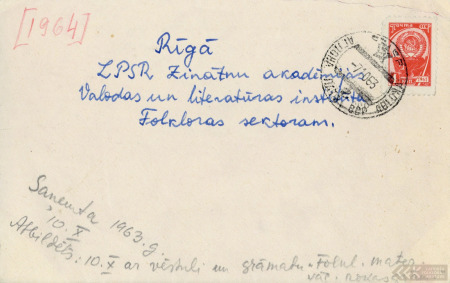 [1964]
Rīgā
LPSR Zinātņu akadēmijas
Valodas un literatūras institūta
Folkloras sektoram.
Saņemta 1963.g.
10. X
Atbildēts: 10. X ar vēstuli un grāmatu "Folkl. mater.